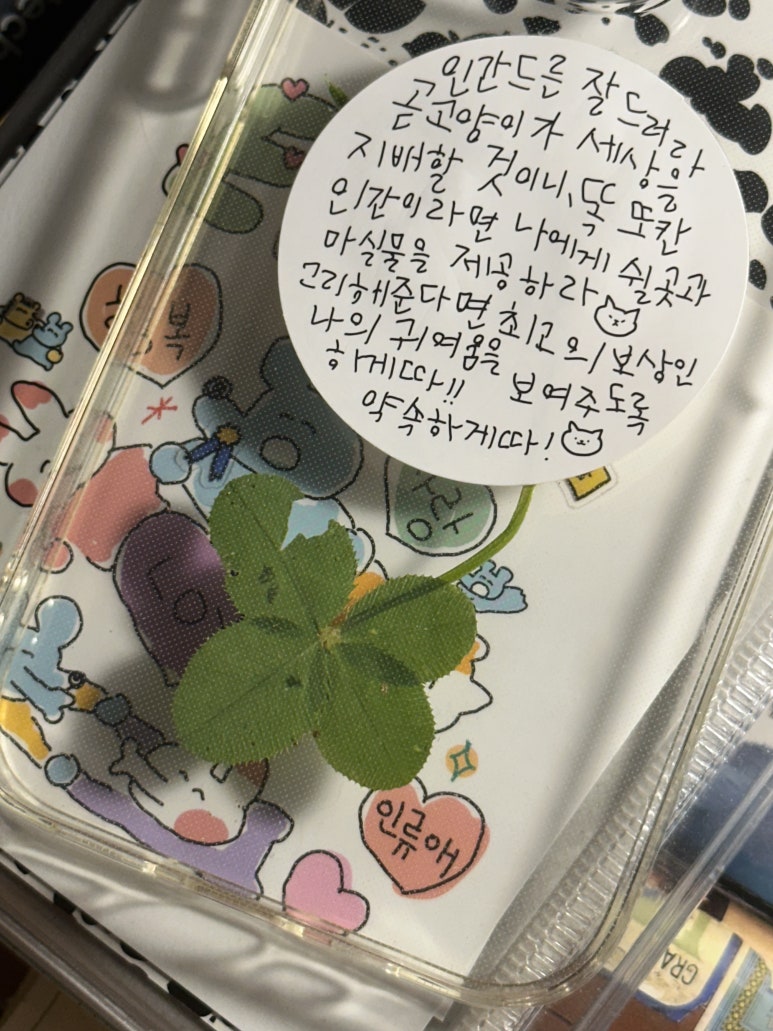 인간드른 잘 드러라
곧 고양이가 세상을
지배할 것이니, 똑 또칸
인간이라면 나에게 쉴곳과
마실물을 제공하라
그리해준다면 최고의 보상인
나의 귀여움을 보여주도록
하게따!!
약속하게따!
행복
사랑
인류애
GRA